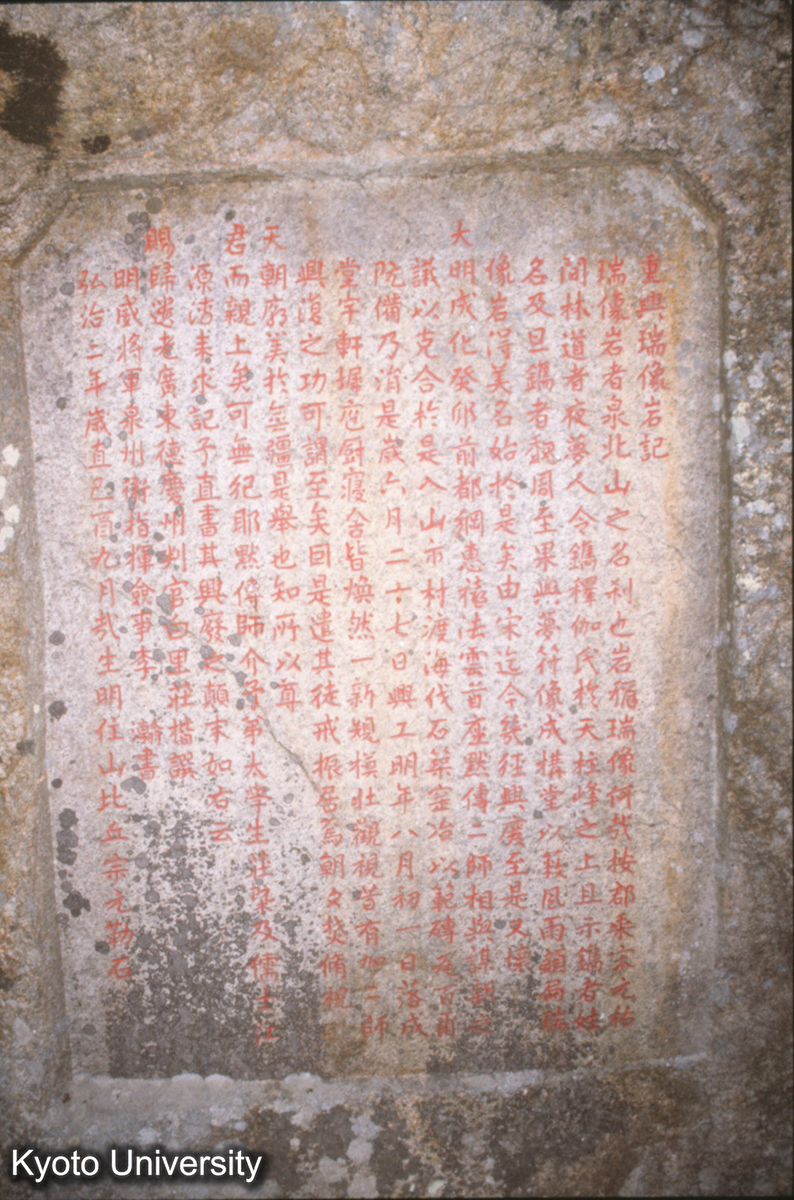 重興瑞像岩記
瑞像岩者泉北山之名刹也岩稱瑞像何哉按郡乘宋元祐
間林道者夜夢人令鐫釋伽氏於天柱峰之上且示鐫者姓
名及旦鐫者魏周至果與夢符像成構堂以蔽風雨額扁
像岩得美名始於是矣由宋迄今幾経興廢至是又懷
大明成化癸卯前都綱惠禧法雲首座默傳二師相與謀
議以克合於是入山市材渡海伐石築窑冶以範磚瓦百
院備乃涓是歲六月二十七日興工明年八月初一日落成
堂宇軒墀庖厨寢舍皆煥然一新規模壯觀視昔有加二師
興復之功可謂至矣因是遣其徒戒振居焉朝夕焚脩祝
天朝聖美於無疆是舉也知所以尊
君而親上矣可無紀耶默傳師介予弟太學生莊槩及儒士江
源清来求記予直書其興廢之顛末如右云
賜歸逸老廣東德慶州判官百里莊楷譔
明威將軍泉州衛指揮僉事李 翰書
弘治二年歲直己酉九月哉生明住山比丘宗元勒石
Kyoto University